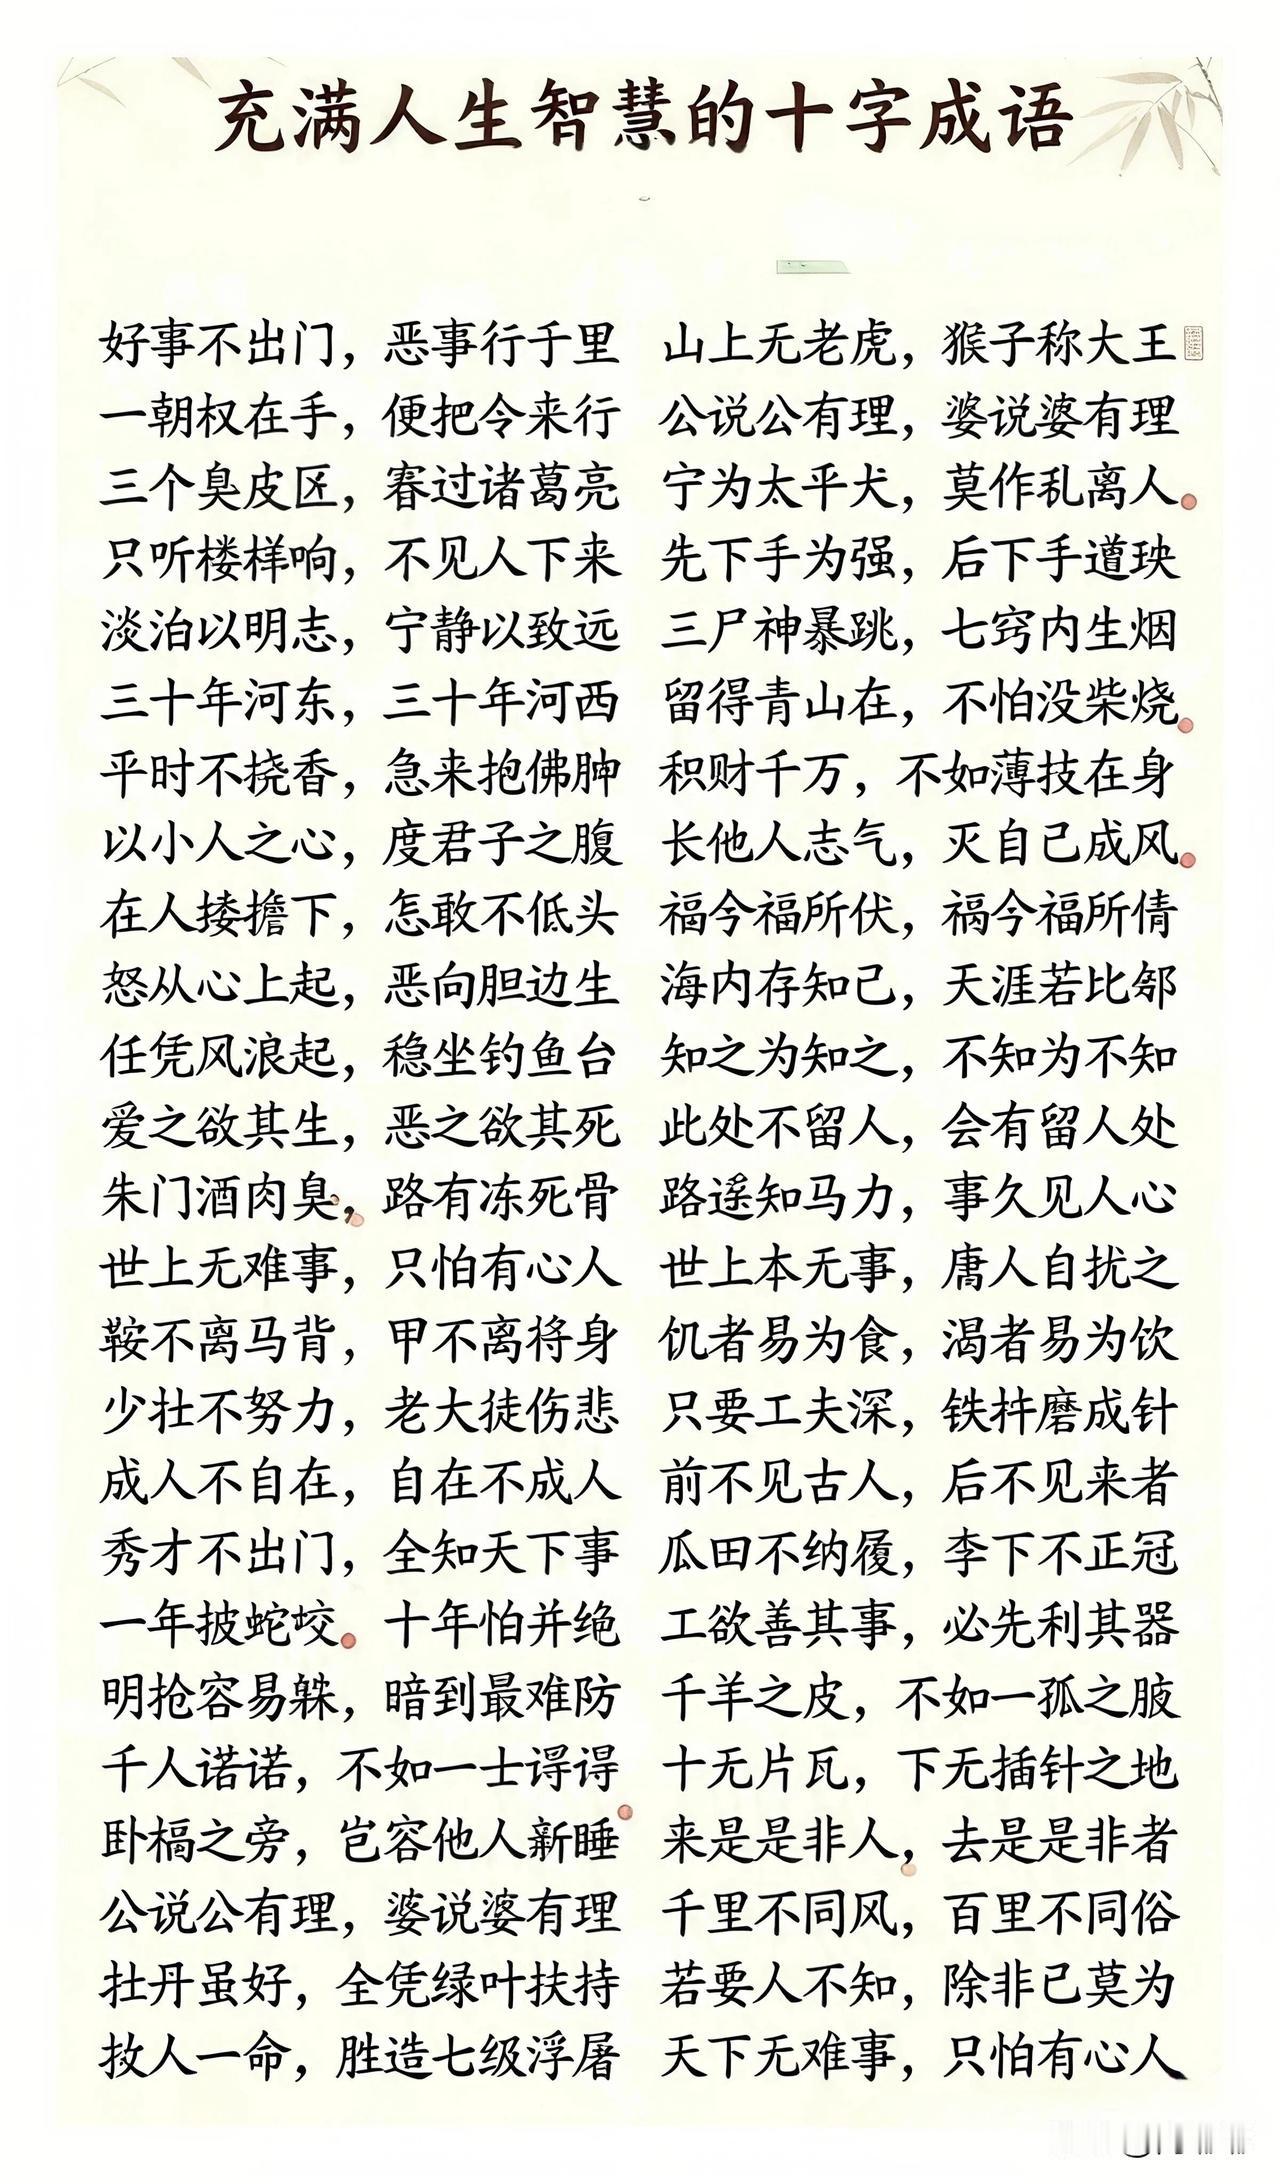 充满人生智慧的十字成语
好事不出门，恶事行千里 山上无老虎，猴子称大王
一朝权在手，便把令来行 公说公有理，婆说婆有理
三个臭皮区，赛过诸葛亮 宁为太平犬，莫作乱离人
只听楼样响，不见人下来 先下手为强，后下手道殃
淡泊以明志，宁静以致远 三尸神暴跳，七窍内生烟
三十年河东，三十年河西 留得青山在，不怕没柴烧
平时不挠香，急来抱佛胂 积财千万，不如薄技在身
以小人之心，度君子之腹 长他人志气，灭自己成风
在人搂擔下，怎敢不低头 福今福所伏，祸今福所倩
怒从心上起，恶向胆边生 海内存知己，天涯若比邻
任凭风浪起，稳坐钓鱼台 知之为知之，不知为不知
爱之欲其生，恶之欲其死 此处不留人，会有留人处
朱门酒肉臭，路有冻死骨 路遥知马力，事久见人心
世上无难事，只怕有心人 世上本无事，庸人自扰之
鞍不离马背，甲不离将身 饥者易为食，渴者易为饮
少壮不努力，老大徒伤悲 只要工夫深，铁杵磨成针
成人不自在，自在不成人 前不见古人，后不见来者
秀才不出门，全知天下事 瓜田不纳履，李下不正冠
一年披蛇咬 十年怕并绝 工欲善其事，必先利其器
明抢容易躲，暗到最难防 千羊之皮，不如一孤之腋
千人诺诺，不如一士谔谔 十无片瓦，下无插针之地
卧榻之旁，岂容他人新睡 来是是非人，去是是非者
公说公有理，婆说婆有理 千里不同风，百里不同俗
牡丹虽好，全凭绿叶扶持 若要人不知，除非已莫为
救人一命，胜造七级浮屠 天下无难事，只怕有心人